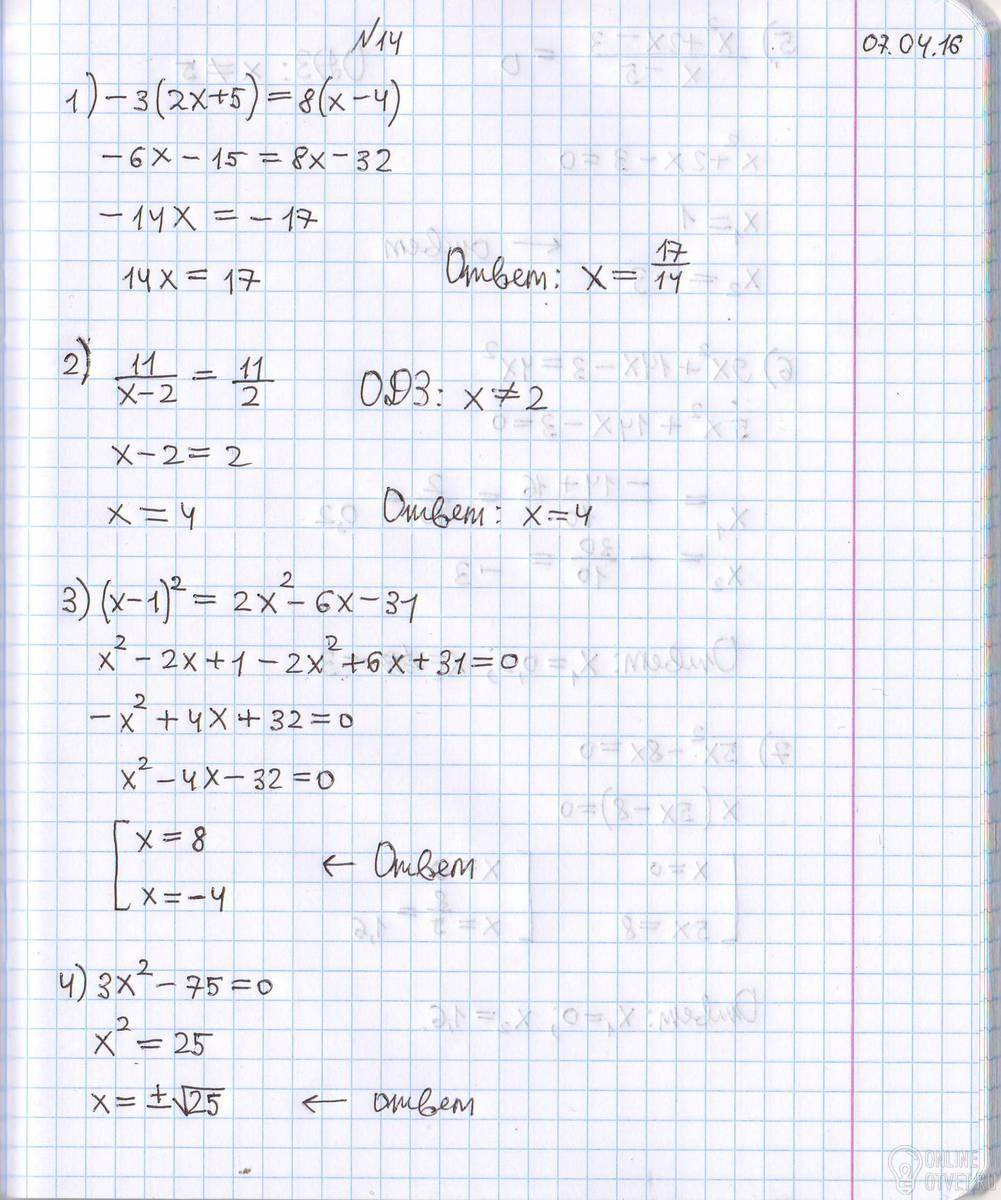 N14
07.04.16
1) -3(2x+5)=8(x-4)
-6x-15=8x-32
-14x=-17
14x=17 Ответ: x=17/14
2) 11/(x-2)=11/2 ОДЗ: x≠2
x-2=2
x=4 Ответ: x=4
3) (x-1)²=2x²-6x-31
x²-2x+1-2x²+6x+31=0
-x²+4x+32=0
x²-4x-32=0
[x=8
x=-4 ← Ответ
4) 3x²-75=0
x²=25
x=±√25 ← ответ
ONLINE